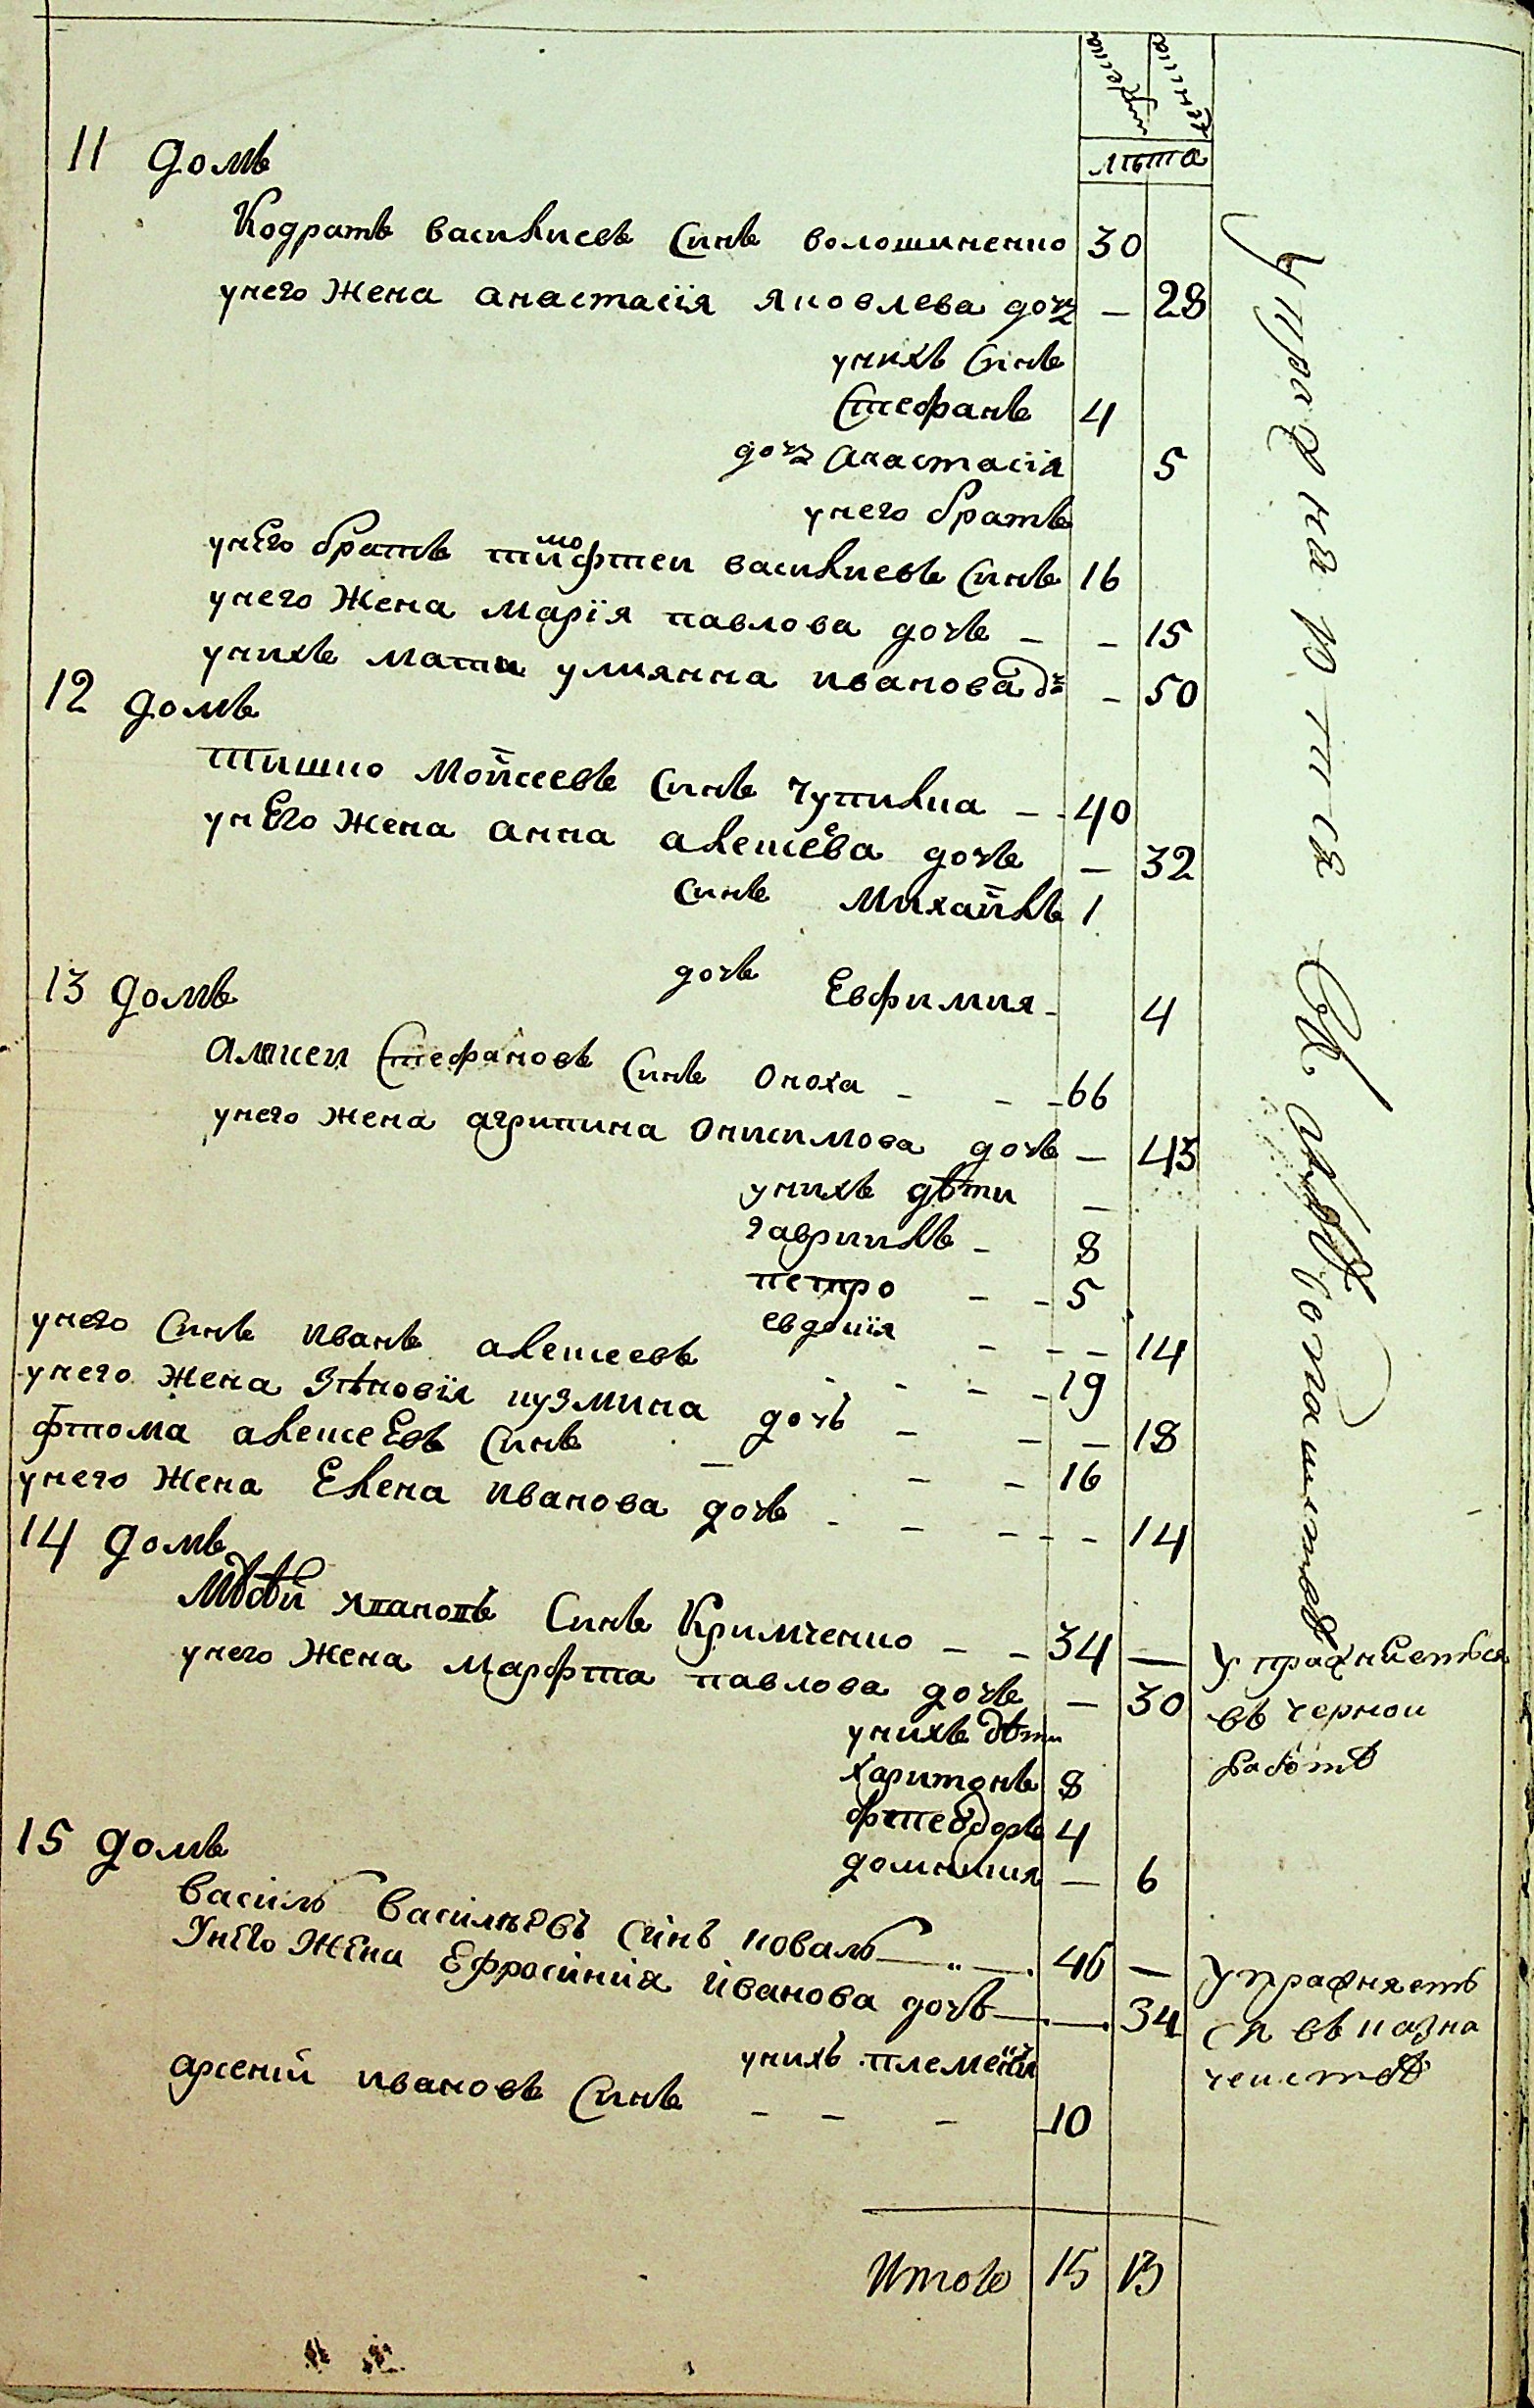 мужеска женска
лѣта
11 домъ
Кодратъ василиевъ Синъ волошиненко 30
унего жена анастасїя яковлева дочь — 28
унихъ Синъ
Стефанъ 4
дочь анастасїя 5
унего братъ
унего братъ тимофтеи василиевъ Синъ 16
унего жена марїя павлова дочъ — — 15
унихъ мати улиянна иванова дч — 50
12 домъ
тишко мойсеевъ Синъ чупилка — 40
унего жена анна алексеева дочъ — 32
синъ михайлъ 1
дочъ Евфимия - 4
13 домъ
алексеи Стефановъ Синъ оноха - - - 66
унего жена агрипина онисимова дочъ — 43
унихъ дѣти —
гавриилъ - 8
петро - - 5
евдокїя - - - 14
унего Синъ иванъ алексеевъ - - - - 19
унего жена зѣновїя кузмина дочъ - - — 18
фтома алексеевъ Синъ — - - 16
унего жена Елена иванова дочъ - - - - - 14
14 домъ
Синъ Кримченко — — 34 — упражнѣеться
унего жена марфта павлова дочъ — 30 въ чернои
унихъ дѣти работѣ
харитонъ 8
фтеодоръ 4
домникия — 6
15 домъ
василь васильевъ синъ коваль — „ — 46 — упражняеть
Унего жена Ефросиния иванова дочъ — — 34 ся въ казна
унихъ племеникъ чеиствѣ
арсений ивановъ Синъ - - - 10
Итого 15 13
упражняются въ хлѣбопашествѣ